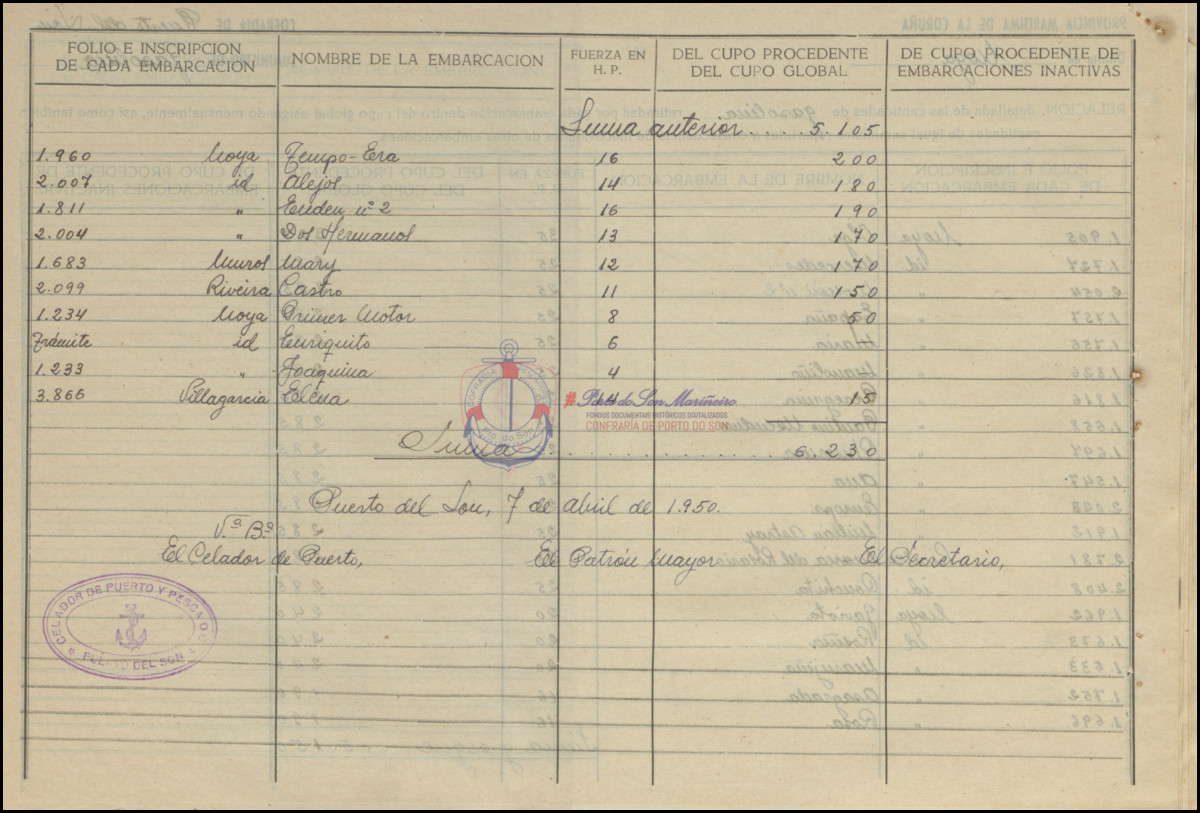 FOLIO E INSCRIPCION DE CADA EMBARCACION | NOMBRE DE LA EMBARCACION | FUERZA EN H. P. | DEL CUPO PROCEDENTE DEL CUPO GLOBAL | DE CUPO PROCEDENTE DE EMBARCACIONES INACTIVAS
Suma anterior..... 5.105
1.960 Noya Tempo-Era 16 200
2.007 id Alejos 14 180
1.811 " Euden nº 2 16 190
2.004 " Dos Hermanos 13 170
1.683 Muros Mary 12 170
2.099 Riveira Castro 11 150
1.234 Noya Primer Motor 8 50
Trámite id Enriquito 6
1.233 " Joaquina 4
3.866 Villagarcia Elena
#Porto do Son Mariñeiro
FONDOS DOCUMENTAIS HISTÓRICOS DIXITALIZADOS
CONFRARÍA DE PORTO DO SON
Suma 6.230
Puerto del Son, 7 de abril de 1.950.
Vº Bº
El Celador de Puerto, El Patrón Mayor El Secretario,
CELADOR DE PUERTO Y PESCA DE
PUERTO DEL SON